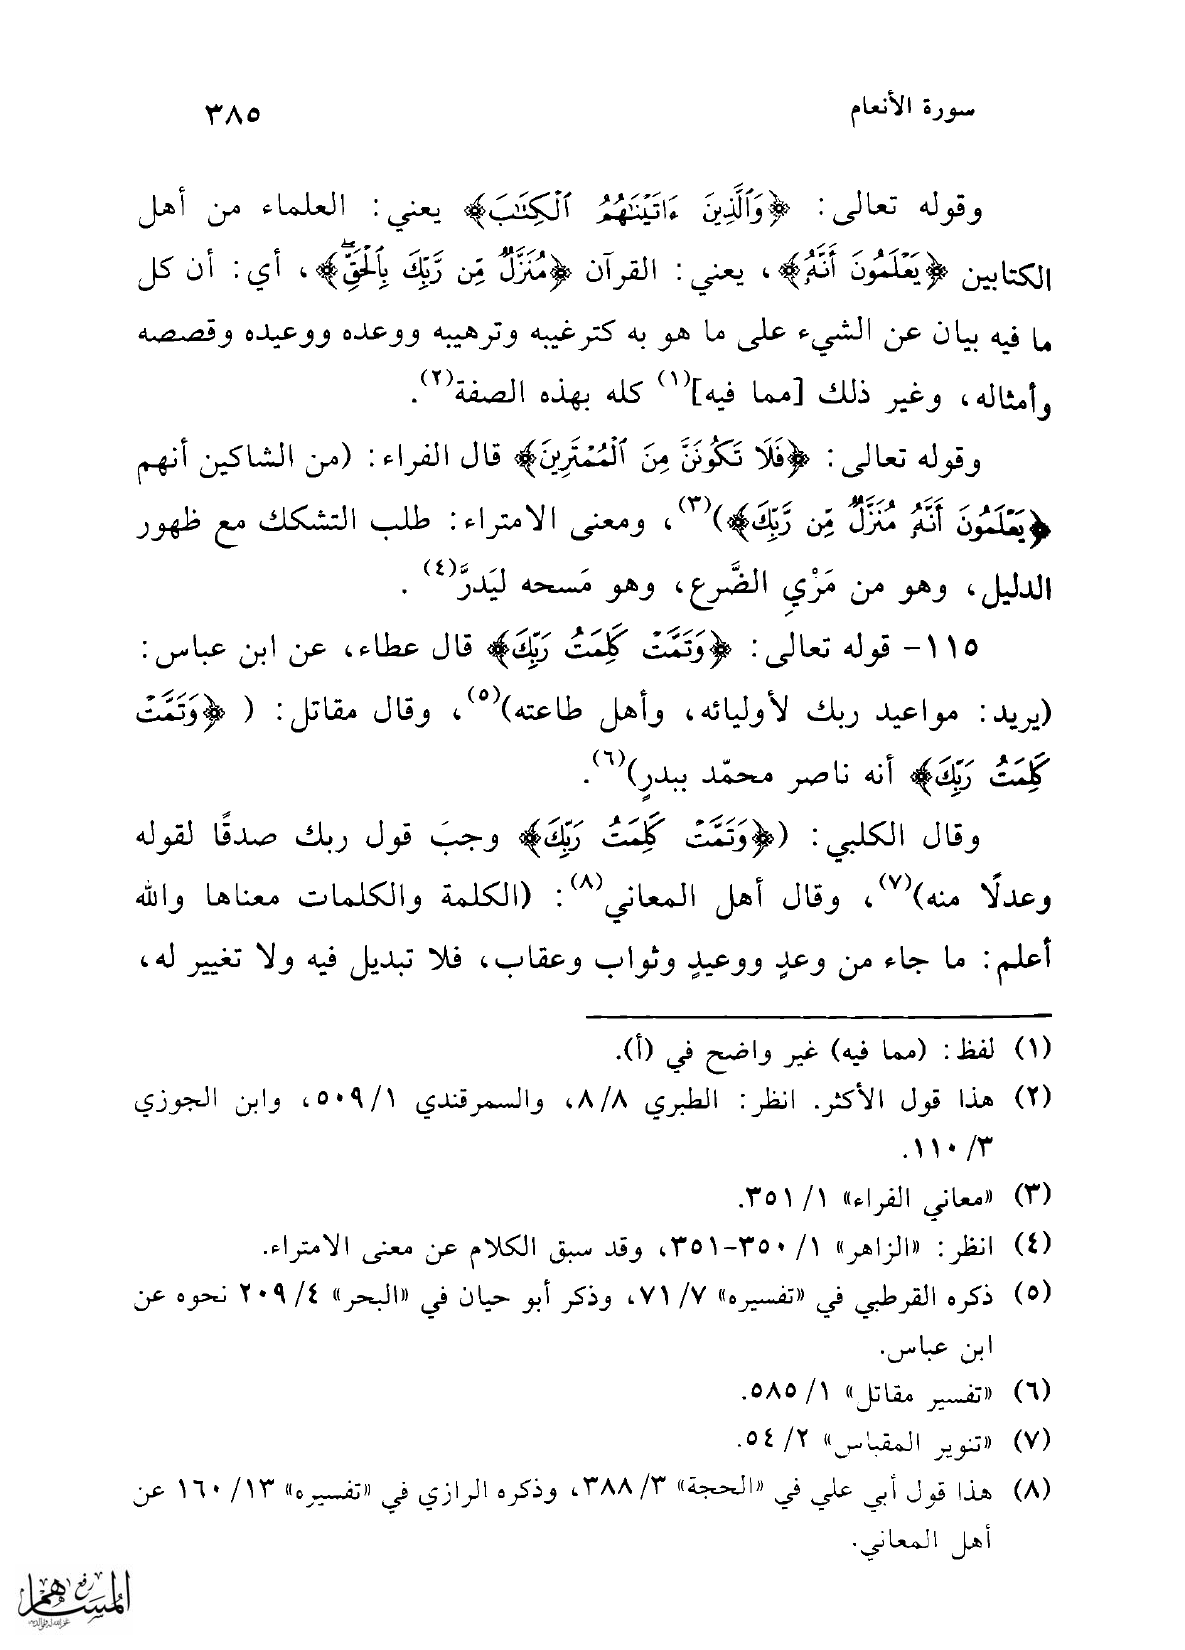 سورة الأنعام ٣٨٥
وقوله تعالى: ﴿وَٱلَّذِينَ ءَاتَيْنَٰهُمُ ٱلْكِتَٰبَ﴾ يعني: العلماء من أهل
الكتابين ﴿يَعْلَمُونَ أَنَّهُۥ﴾، يعني: القرآن ﴿مُنَزَّلٌ مِّن رَّبِّكَ بِٱلْحَقِّۖ﴾، أي: أن كل
ما فيه بيان عن الشيء على ما هو به كترغيبه وترهيبه ووعده ووعيده وقصصه
وأمثاله، وغير ذلك [مما فيه](١) كله بهذه الصفة(٢).
وقوله تعالى: ﴿فَلَا تَكُونَنَّ مِنَ ٱلْمُمْتَرِينَ﴾ قال الفراء: (من الشاكين أنهم
﴿يَعْلَمُونَ أَنَّهُۥ مُنَزَّلٌ مِّن رَّبِّكَ﴾)(٣)، ومعنى الامتراء: طلب التشكك مع ظهور
الدليل، وهو من مَرْيِ الضَّرع، وهو مَسحه ليَدرَّ(٤).
١١٥- قوله تعالى: ﴿وَتَمَّتْ كَلِمَتُ رَبِّكَ﴾ قال عطاء، عن ابن عباس:
(يريد: مواعيد ربك لأوليائه، وأهل طاعته)(٥)، وقال مقاتل: (﴿وَتَمَّتْ
كَلِمَتُ رَبِّكَ﴾ أنه ناصر محمّد ببدرٍ)(٦).
وقال الكلبي: (﴿وَتَمَّتْ كَلِمَتُ رَبِّكَ﴾ وجبَ قول ربك صدقًا لقوله
وعدلًا منه)(٧)، وقال أهل المعاني(٨): (الكلمة والكلمات معناها والله
أعلم: ما جاء من وعدٍ ووعيدٍ وثواب وعقاب، فلا تبديل فيه ولا تغيير له،
(١) لفظ: (مما فيه) غير واضح في (أ).
(٢) هذا قول الأكثر. انظر: الطبري ٨/٨، والسمرقندي ١/ ٥٠٩، وابن الجوزي
٣/ ١١٠.
(٣) «معاني الفراء» ١/ ٣٥١.
(٤) انظر: «الزاهر» ١/ ٣٥٠-٣٥١، وقد سبق الكلام عن معنى الامتراء.
(٥) ذكره القرطبي في «تفسيره» ٧/ ٧١، وذكر أبو حيان في «البحر» ٤/ ٢٠٩ نحوه عن
ابن عباس.
(٦) «تفسير مقاتل» ١/ ٥٨٥.
(٧) «تنوير المقباس» ٢/ ٥٤.
(٨) هذا قول أبي علي في «الحجة» ٣/ ٣٨٨، وذكره الرازي في «تفسيره» ١٣/ ١٦٠ عن
أهل المعاني.
رفع
المساهم